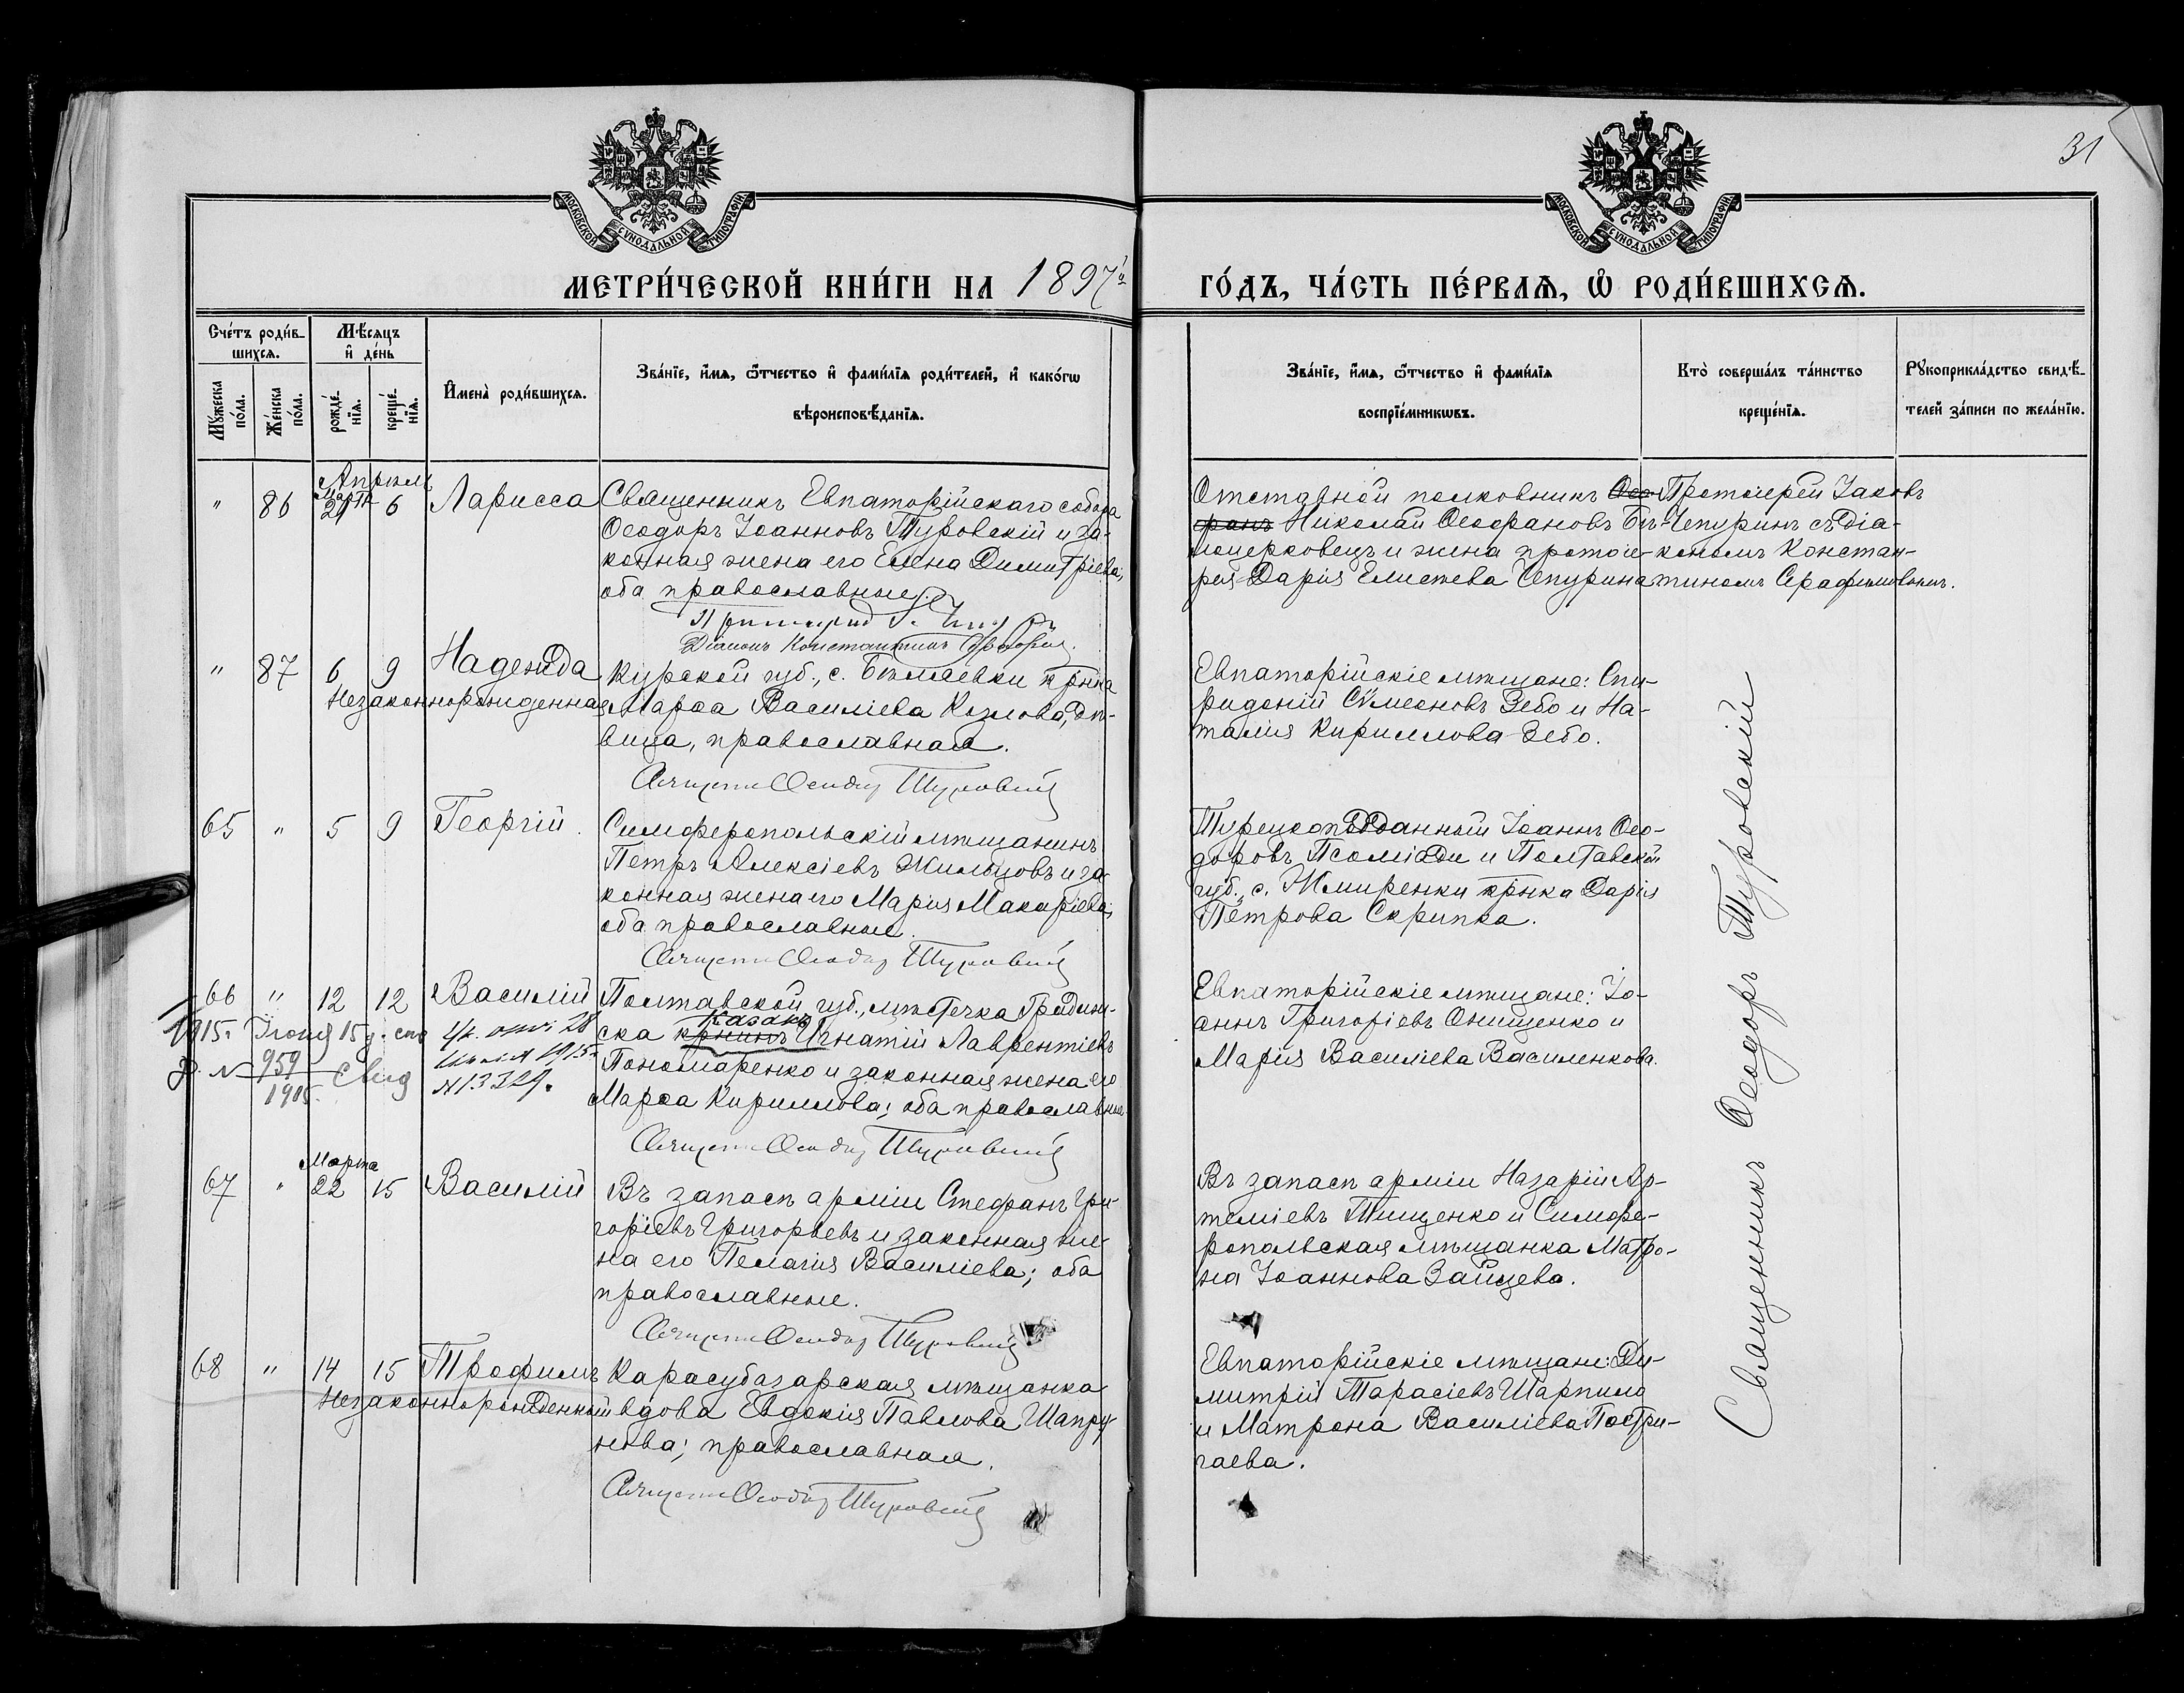 31
МОСКОВСКОЙ СѴНОДАЛЬНОЙ ТИПОГРАФІИ
МОСКОВСКОЙ СѴНОДАЛЬНОЙ ТИПОГРАФІИ
МЕТРИ́ЧЕСКОЙ КНИ́ГИ НА 1897й
ГО́ДЪ, ЧА́СТЬ ПЕ́РВАѦ, Ѽ РОДИ́ВШИХСѦ.
Сче́тъ роди́в-
шихсѧ.
Мѣ́сѧцъ
и҆ де́нь
Мꙋ́жеска
по́ла.
Же́нска
по́ла.
рожде́-
нїѧ.
креще́-
нїѧ.
И҆мена̀ роди́вшихсѧ.
Зва́нїе, и҆́мѧ, ѻ҆́тчество и҆ фами́лїѧ роди́телей, и҆ како́гѡ
вѣроисповѣ́данїѧ.
Зва́нїе, и҆́мѧ, ѻ҆́тчество и҆ фами́лїѧ
воспрїе́мникѡвъ.
Кто̀ соверша́лъ та́инство
креще́нїѧ.
Рꙋкоприкла́дство свидѣ́-
телей за́писи по жела́нїю.
Апрѣль
Марта
" 86 21 6 Ларисса
Священникъ Евпаторійскаго собора
Ѳеодоръ Іоанновъ Туровскій и за-
конная жена его Елена Димитріева;
оба православные.
Діаконъ Константинъ
Отставной полковникъ Ѳео-
фанъ Николай Ѳеофановъ Бѣ-
лоцерковецъ и жена протоіе-
рея Дарія Елисеева Чепурина
Протоіерей Іаковъ
Чепуринъ съ діа-
кономъ Констан-
тиномъ Серафимовымъ.
" 87 6 9 Надежда
Незаконнорожденная
Курской губ., с. Бѣлаевки кр-нка
Марѳа Василіева Козлова, дѣ-
вица, православная.
Священ Ѳеодор Туровскій
Евпаторійскіе мѣщане: Спи-
ридоній Сѵмеоновъ Зебо и На-
талія Кириллова Зебо.
65 " 5 9 Георгій.
Симферопольскій мѣщанинъ
Петръ Алексіевъ Жильцовъ и за-
конная жена его Марія Макаріева;
оба православные.
Священ Ѳеодор Туровскій
Турецкоподданный Іоаннъ Ѳео-
доровъ Псоміади и Полтавской
губ., с. Жмиренки кр-нка Дарія
Петрова Скрипка.
66 " 12 12 Василій
1915 г. Іюня 15 д.
№ 959
1915. Свид
28
1915 г.
№ 1332
Полтавской губ., мѣстечка Градиж-
ска кр-нинъ казакъ Игнатій Лаврентіевъ
Пономаренко и законная жена его
Марѳа Кириллова; оба православные.
Священ Ѳеодор Туровскій
Евпаторійскіе мѣщане: Іо-
аннъ Григоріевъ Онищенко и
Марія Василіева Василенкова.
Марта
67 " 22 15 Василій
Въ запасѣ арміи Стефанъ Гри-
горіевъ Григорьевъ и законная же-
на его Пелагія Василіева; оба
православные.
Священ Ѳеодор Туровскій
Въ запасѣ арміи Назарій Ар-
теміевъ Тищенко и Симфе-
ропольская мѣщанка Матро-
на Іоаннова Зайцева.
68 " 14 15 Трофимъ
Незаконнорожденный
Карасубазарская мѣщанка
вдова Евдокія Павлова Шапру-
нова; православная.
Священ Ѳеодор Туровскій
Евпаторійскіе мѣщане: Ди-
митрій Тарасіевъ Шарпило
и Матрона Василіева Постри-
гаева.
Священникъ Ѳеодоръ Туровскій